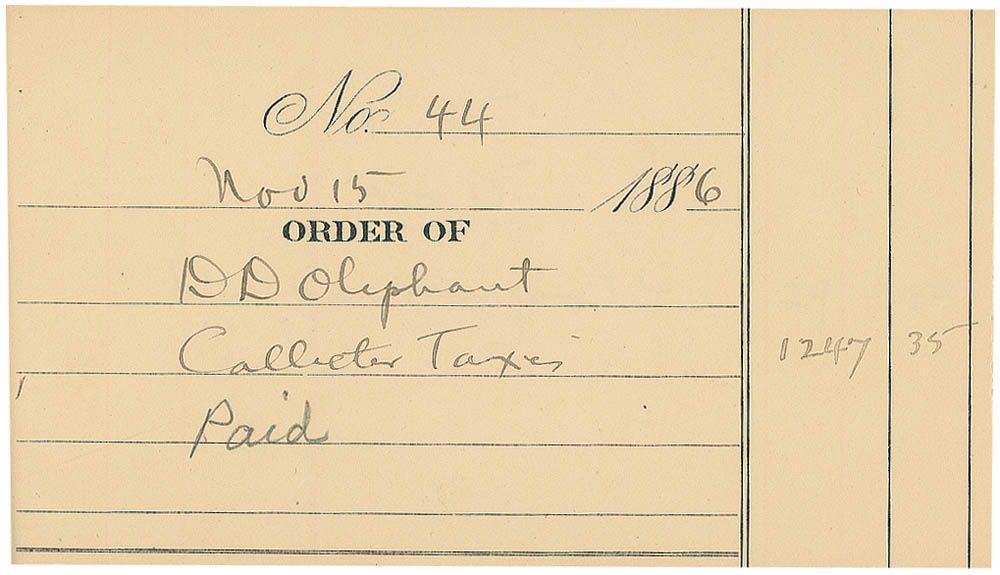 No. 44
Nov 15 1886
ORDER OF
DD Oliphant
Collector Taxes 1247 35
Paid